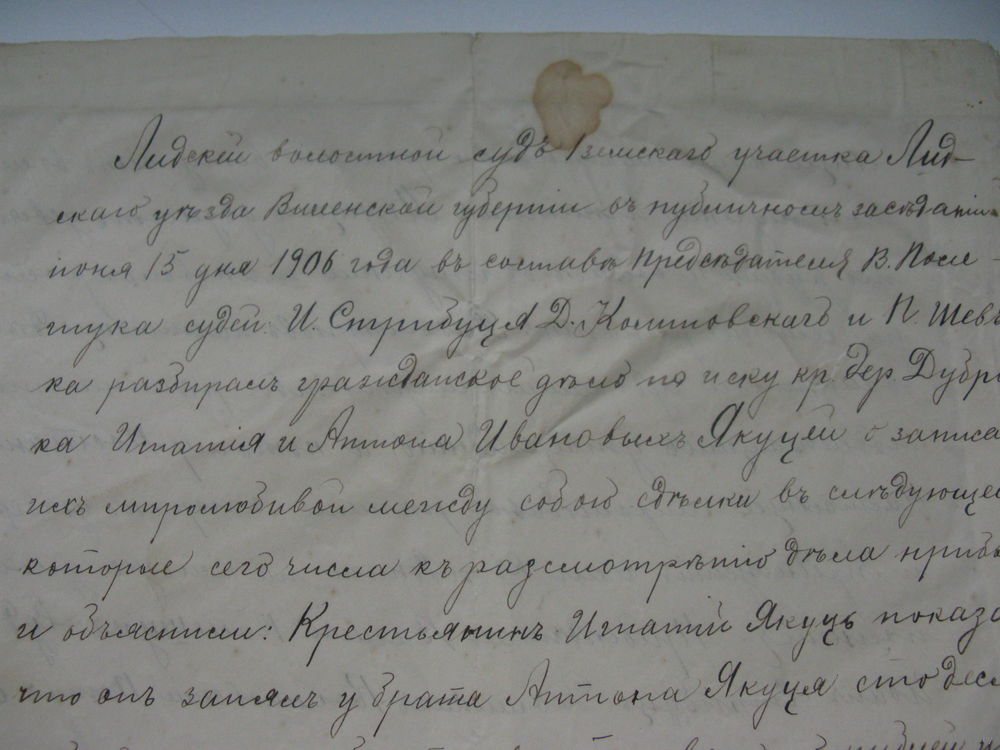 Лидскій волостной судъ 1 земскаго участка Лид-
скаго уѣзда Виленской губерніи въ публичномъ засѣданіи
іюня 15 дня 1906 года въ составѣ Предсѣдателя В. Поле-
щука судей: И. Стрибуця Д. Колтовскаго и П. Шевч
ка разбиралъ гражданское дѣло по иску кр. дер. Дубро
ка Игнатія и Антона Ивановыхъ Якуцей о записа
ихъ миролюбивой между собою сдѣлки въ слѣдующе
которые сего числа къ разсмотрѣнію дѣла прибы
и объяснили: Крестьянинъ Игнатій Якуць показа
что онъ занялъ у брата Антона Якуця сто деся